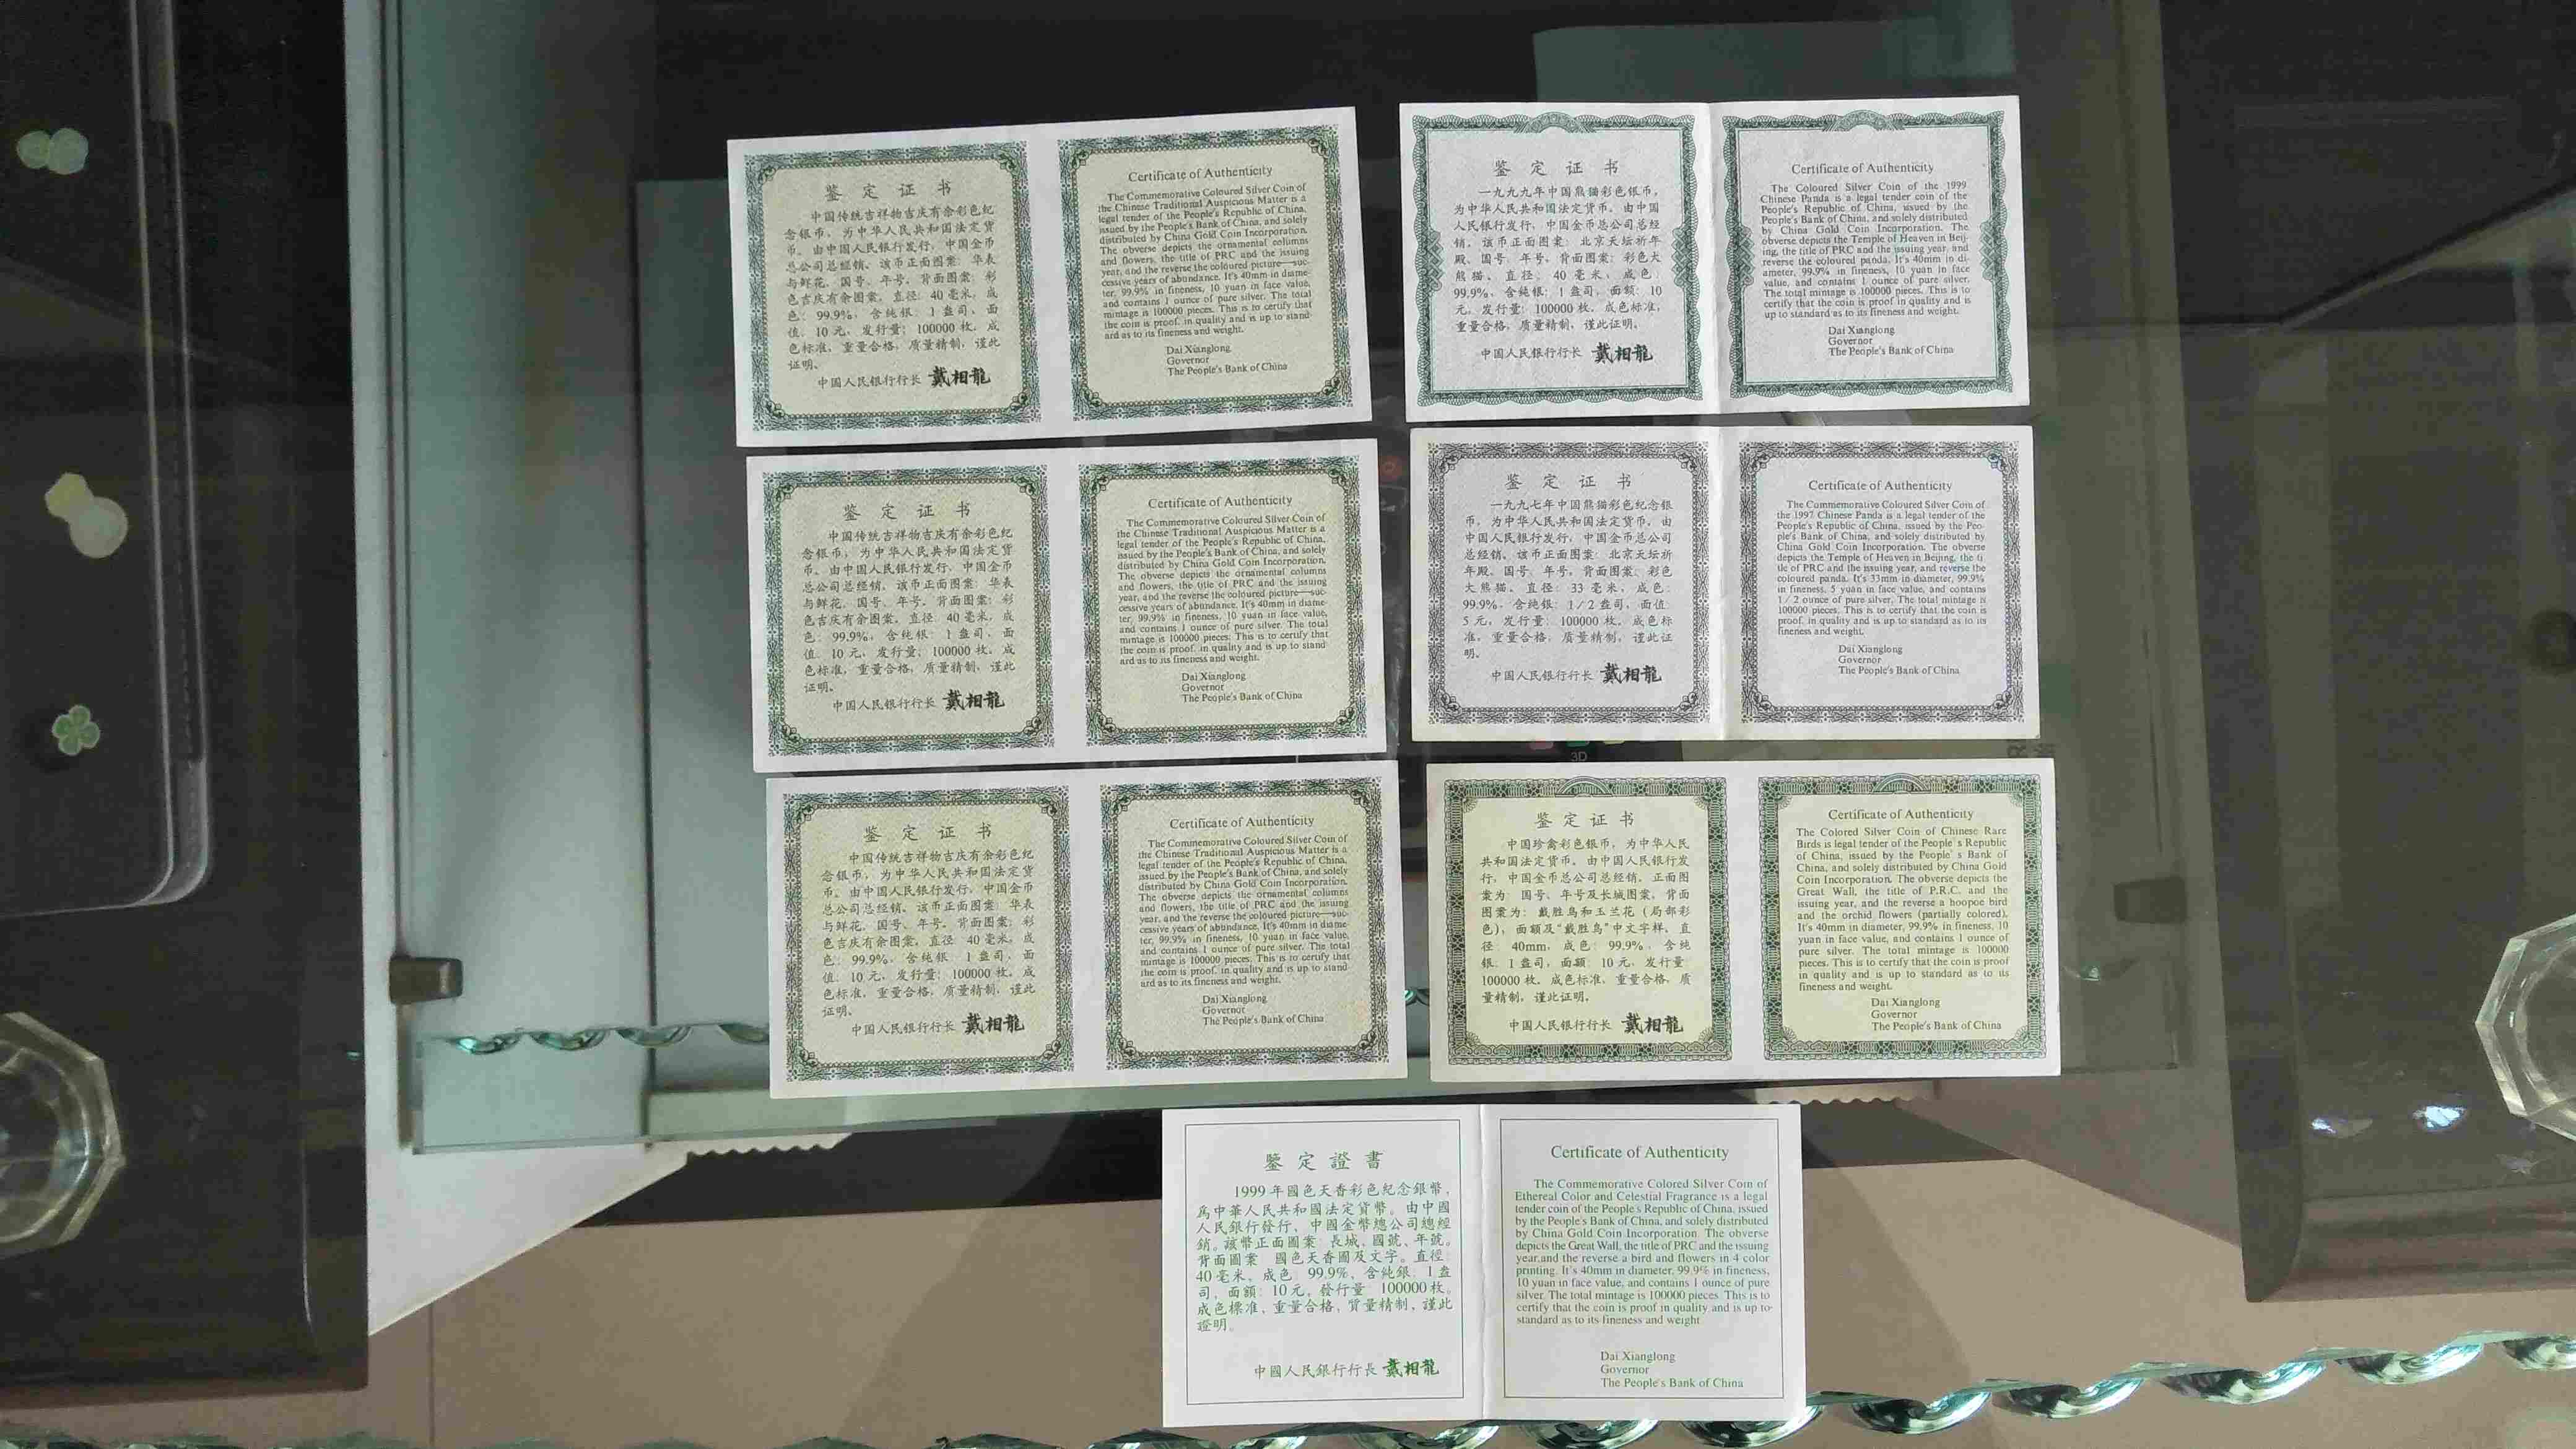 鉴定证书
中国传统吉祥物吉庆有余彩色纪
念银币，为中华人民共和国法定货
币。由中国人民银行发行，中国金币
总公司总经销。该币正面图案：华表
与鲜花，国号、年号。背面图案：彩
色吉庆有余图案。直径：40毫米，成
色：99.9%，含纯银：1盎司，面
值：10元，发行量：100000枚。成
色标准，重量合格，质量精制，谨此
证明。
中国人民银行行长 戴相龍
Certificate of Authenticity
The Commemorative Coloured Silver Coin of
the Chinese Traditional Auspicious Matter is a
legal tender of the People's Republic of China,
issued by the People's Bank of China, and solely
distributed by China Gold Coin Incorporation.
The obverse depicts the ornamental columns
and flowers, the title of PRC and the issuing
year, and the reverse the coloured picture—suc-
cessive years of abundance. It's 40mm in diame-
ter, 99.9% in fineness, 10 yuan in face value,
and contains 1 ounce of pure silver. The total
mintage is 100000 pieces. This is to certify that
the coin is proof, in quality and is up to stand-
ard as to its fineness and weight.
Dai Xianglong
Governor
The People's Bank of China
鉴定证书
一九九九年中国熊猫彩色银币，
为中华人民共和国法定货币。由中国
人民银行发行，中国金币总公司总经
销。该币正面图案：北京天坛祈年
殿、国号、年号。背面图案：彩色大
熊猫。直径：40毫米，成色：
99.9%，含纯银：1盎司，面额：10
元，发行量：100000枚。成色标准，
重量合格，质量精制，谨此证明。
中国人民银行行长 戴相龍
Certificate of Authenticity
The Coloured Silver Coin of the 1999
Chinese Panda is a legal tender coin of the
People's Republic of China, issued by the
People's Bank of China, and solely distributed
by China Gold Coin Incorporation. The
obverse depicts the Temple of Heaven in Beij-
ing, the title of PRC and the issuing year, and
reverse the coloured panda. It's 40mm in di-
ameter, 99.9% in fineness, 10 yuan in face
value, and contains 1 ounce of pure silver.
The total mintage is 100000 pieces. This is to
certify that the coin is proof in quality and is
up to standard as to its fineness and weight.
Dai Xianglong
Governor
The People's Bank of China
鉴定证书
中国传统吉祥物吉庆有余彩色纪
念银币，为中华人民共和国法定货
币。由中国人民银行发行，中国金币
总公司总经销。该币正面图案：华表
与鲜花，国号、年号。背面图案：彩
色吉庆有余图案。直径：40毫米，成
色：99.9%，含纯银：1盎司，面
值：10元，发行量：100000枚。成
色标准，重量合格，质量精制，谨此
证明。
中国人民银行行长 戴相龍
Certificate of Authenticity
The Commemorative Coloured Silver Coin of
the Chinese Traditional Auspicious Matter is a
legal tender of the People's Republic of China,
issued by the People's Bank of China, and solely
distributed by China Gold Coin Incorporation.
The obverse depicts the ornamental columns
and flowers, the title of PRC and the issuing
year, and the reverse the coloured picture—suc-
cessive years of abundance. It's 40mm in diame-
ter, 99.9% in fineness, 10 yuan in face value,
and contains 1 ounce of pure silver. The total
mintage is 100000 pieces. This is to certify that
the coin is proof, in quality and is up to stand
ard as to its fineness and weight.
Dai Xianglong
Governor
The People's Bank of China
鉴定证书
一九九七年中国熊猫彩色纪念银
币，为中华人民共和国法定货币。由
中国人民银行发行，中国金币总公司
总经销。该币正面图案：北京天坛祈
年殿、国号、年号。背面图案：彩色
大熊猫。直径：33毫米，成色：
99.9%，含纯银：1/2盎司，面值：
5元，发行量：100000枚。成色标
准，重量合格，质量精制，谨此证
明。
中国人民银行行长 戴相龍
Certificate of Authenticity
The Commemorative Coloured Silver Coin of
the 1997 Chinese Panda is a legal tender of the
People's Republic of China, issued by the Peo-
ple's Bank of China, and solely distributed by
China Gold Coin Incorporation. The obverse
depicts the Temple of Heaven in Beijing, the ti
tle of PRC and the issuing year, and reverse the
coloured panda. It's 33mm in diameter, 99.9%
in fineness, 5 yuan in face value, and contains
1/2 ounce of pure silver. The total mintage is
100000 pieces. This is to certify that the coin is
proof, in quality and is up to standard as to its
fineness and weight.
Dai Xianglong
Governor
The People's Bank of China
3D
鉴定证书
中国传统吉祥物吉庆有余彩色纪
念银币，为中华人民共和国法定货
币。由中国人民银行发行，中国金币
总公司总经销。该币正面图案：华表
与鲜花，国号、年号。背面图案：彩
色吉庆有余图案。直径：40毫米，成
色：99.9%，含纯银：1盎司，面
值：10元，发行量：100000枚。成
色标准，重量合格，质量精制，谨此
证明。
中国人民银行行长 戴相龍
Certificate of Authenticity
The Commemorative Coloured Silver Coin of
the Chinese Traditional Auspicious Matter is a
legal tender of the People's Republic of China,
issued by the People's Bank of China, and solely
distributed by China Gold Coin Incorporation.
The obverse depicts the ornamental columns
and flowers, the title of PRC and the issuing
year, and the reverse the coloured picture—suc-
cessive years of abundance. It's 40mm in diame-
ter, 99.9% in fineness, 10 yuan in face value,
and contains 1 ounce of pure silver. The total
mintage is 100000 pieces. This is to certify that
the coin is proof, in quality and is up to stand
ard as to its fineness and weight.
Dai Xianglong
Governor
The People's Bank of China
鉴定证书
中国珍禽彩色银币，为中华人民
共和国法定货币。由中国人民银行发
行，中国金币总公司总经销。正面图
案为：国号、年号及长城图案，背面
图案为：戴胜鸟和玉兰花（局部彩
色），面额及“戴胜鸟”中文字样。直
径：40mm，成色：99.9%，含纯
银：1盎司，面额：10元，发行量：
100000枚。成色标准，重量合格，质
量精制，谨此证明。
中国人民银行行长 戴相龍
Certificate of Authenticity
The Colored Silver Coin of Chinese Rare
Birds is legal tender of the People's Republic
of China, issued by the People's Bank of
China, and solely distributed by China Gold
Coin Incorporation. The obverse depicts the
Great Wall, the title of P.R.C. and the
issuing year, and the reverse a hoopoe bird
and the orchid flowers (partially colored).
It's 40mm in diameter, 99.9% in fineness, 10
yuan in face value, and contains 1 ounce of
pure silver. The total mintage is 100000
pieces. This is to certify that the coin is proof
in quality and is up to standard as to its
fineness and weight.
Dai Xianglong
Governor
The People's Bank of China
鑒定證書
1999年國色天香彩色紀念銀幣，
爲中華人民共和國法定貨幣。由中國
人民銀行發行，中國金幣總公司總經
銷。該幣正面圖案：長城、國號、年號。
背面圖案：國色天香圖及文字。直徑：
40毫米，成色：99.9%，含純銀：1盎
司，面額：10元，發行量：100000枚。
成色標准，重量合格，質量精制，謹此
證明。
中國人民銀行行長 戴相龍
Certificate of Authenticity
The Commemorative Colored Silver Coin of
Ethereal Color and Celestial Fragrance is a legal
tender coin of the People's Republic of China, issued
by the People's Bank of China, and solely distributed
by China Gold Coin Incorporation. The obverse
depicts the Great Wall, the title of PRC and the issuing
year,and the reverse a bird and flowers in 4 color
printing. It's 40mm in diameter, 99.9% in fineness,
10 yuan in face value, and contains 1 ounce of pure
silver. The total mintage is 100000 pieces. This is to
certify that the coin is proof in quality and is up to
standard as to its fineness and weight
Dai Xianglong
Governor
The People's Bank of China